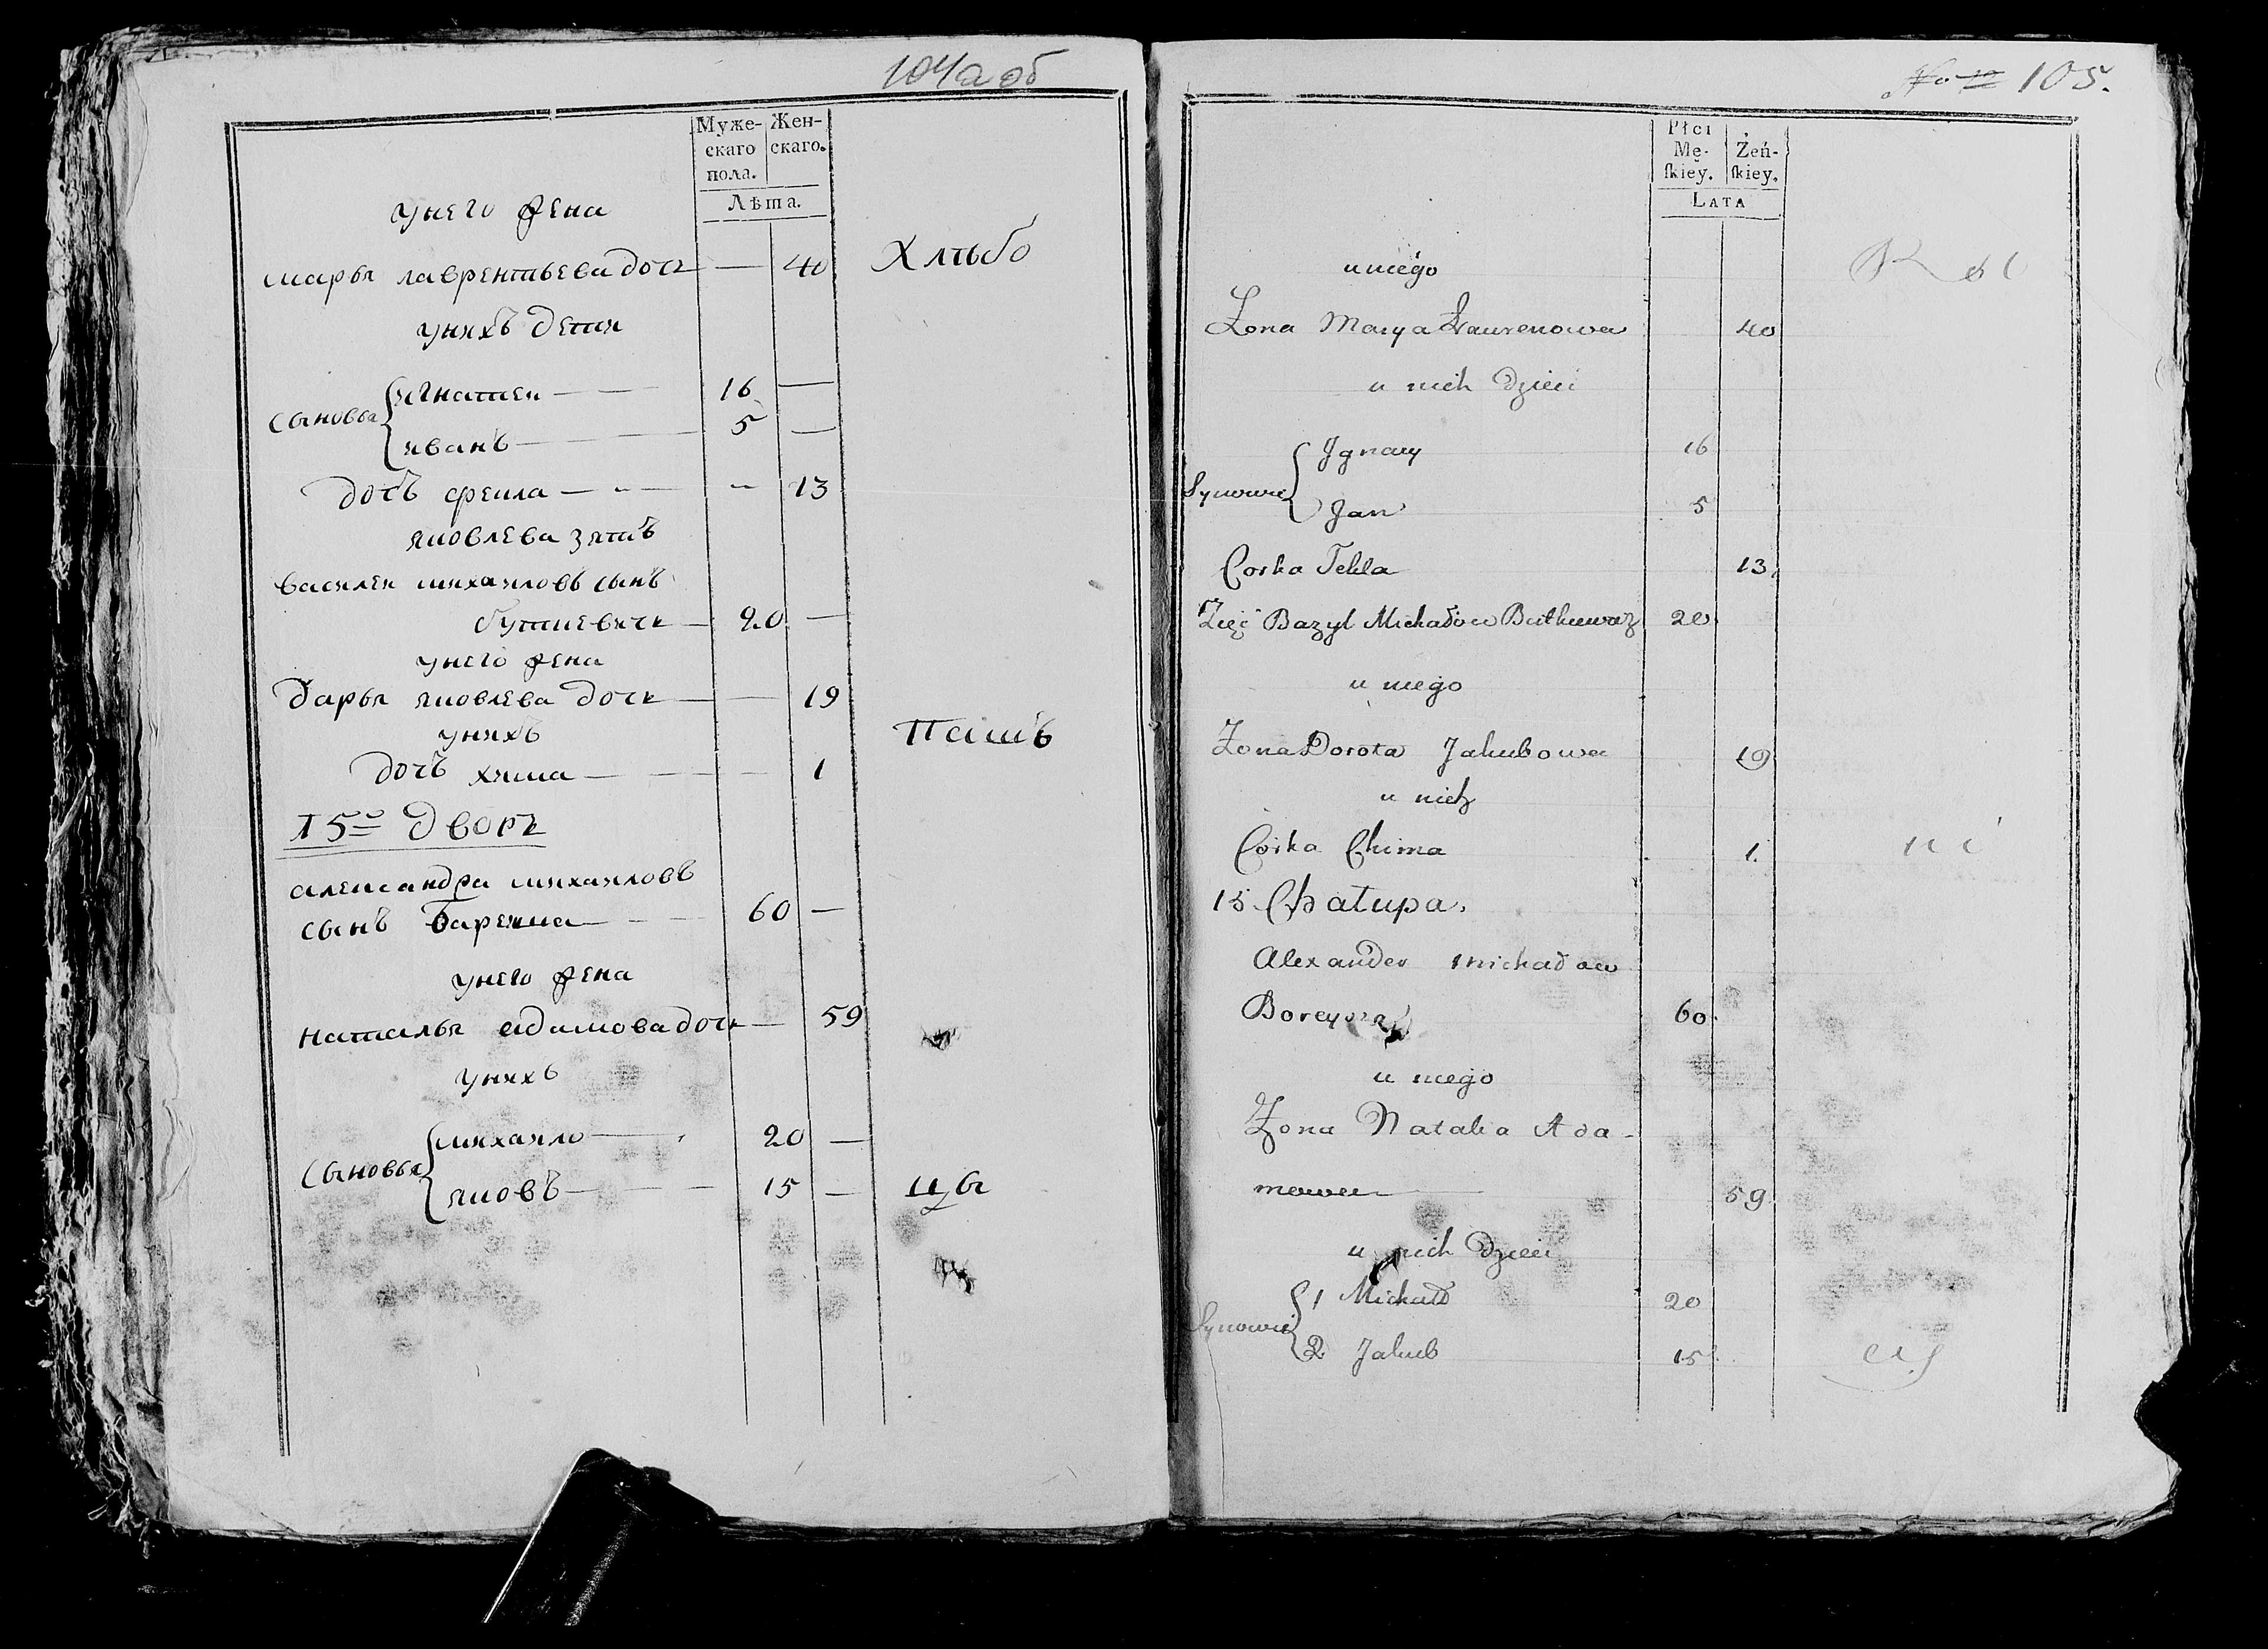 104а об
Муже-
скаго
пола.
Жен-
скаго.
Лѣта.
у него жена
марья лаврентьева дочь — 40
Хлѣбо
у нихъ дети
сыновья
игнатеи — 16 —
иванъ — 5 —
дочъ фекла — — 13
яковлева зятъ
василеи михаиловъ сынъ
буткевичь — 20 —
у него жена
дарья яковлева дочь — — 19
у нихъ
пашъ
дочъ хима — — 1
15о дворъ
александра михаиловъ
сынъ бареиша — 60 —
у него жена
наталья адамова дочь — 59
у нихъ
сыновья
михаило — 20 —
яковъ — 15 —
цы
105.
Płci
Mę-
ſkiey.
Żeń-
ſkiey.
LATA
u niego
Zona Marya Ławrenowa 40
u nich dzieci
Synowie
Jgnacy 16
Jan 5
Corka Tekla 13
Zięć Bazyl Michałow Butkiewicz 20
u niego
Zona Dorota Jakubowa 19
u nich
Corka Chima 1.
15 Chałupa.
Alexander Michałow
60.
u niego
Zona Natalia Ada-
mowa 59.
u nich dzieci
Synowie
1 Michał 20
2 Jakub 15